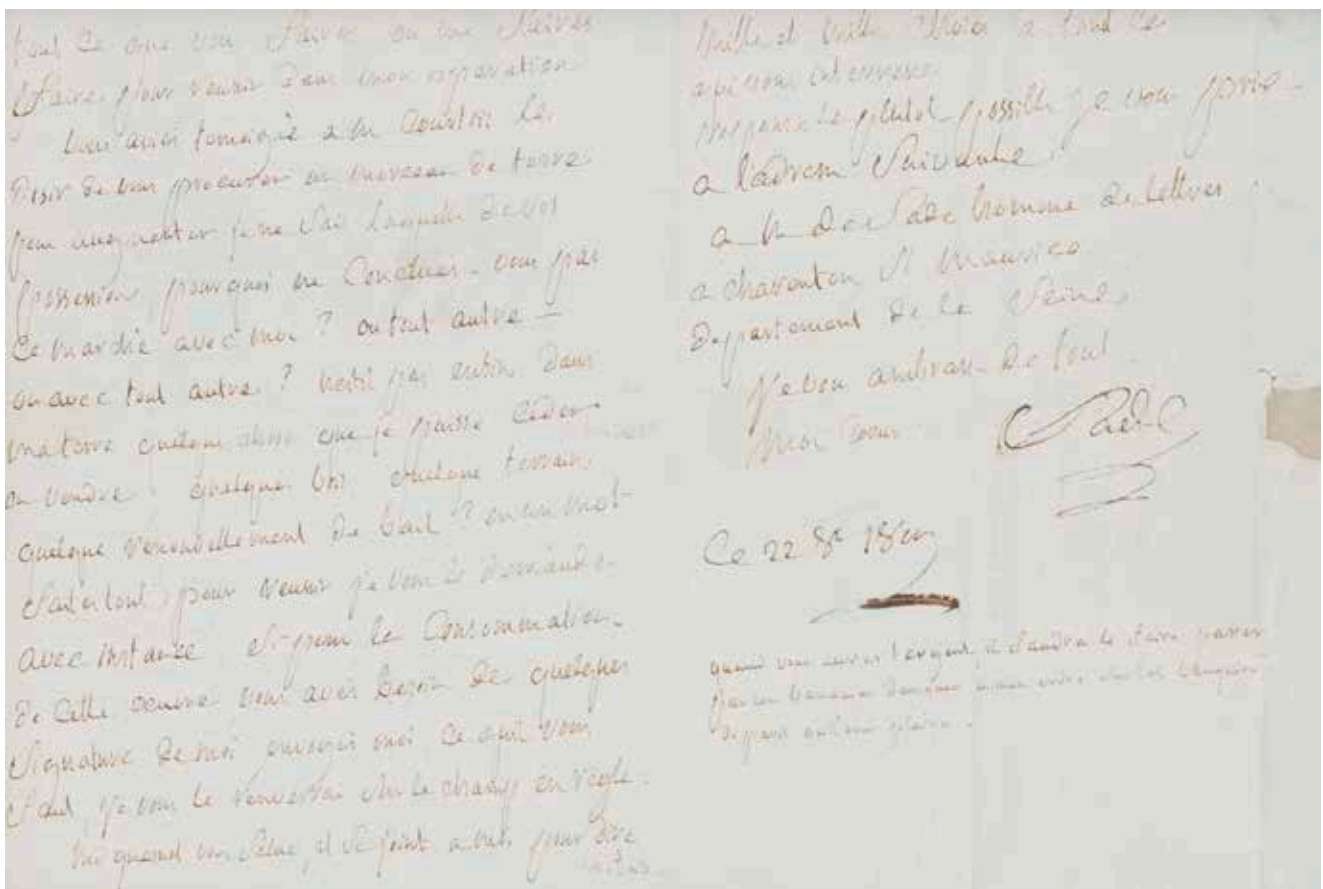 tout ce que vou
faire pour reussir dans mon operation
vous aviez temoigné a M Courtois le
desir de vous procurer un morceau de terre
pour augmenter je ne sai laquelle de vos
possession pourquoi ne concluez-vous pas
ce marché avec moi ? ou tout autre -
ou avec tout autre ? pas enfin dans
ma terre quelque chose que je puisse ceder
ou vendre. quelque bois quelque terrain
quelque renouvellement de bail ? en un mot
tout pour reussir je vous le demande
avec instance Si pour la Consommation
de cette oeuvre vous avez besoin de quelques
signature de moi envoyez moi ce qu'il vous
faut, je vous le renverrai sur le champ en regle.
quand vou pour
mille et mille choses a tout ce
qui vous interresse.
reponse le plutot possible je vou prie
a l'adresse suivante.
a M de Sade homme de lettres
a charenton St maurice
departement de la Seine.
Je vou de tout
mon coeur. Sade
Ce 22 8e
quand vous aurez l'argent, il faudra le faire passer
par un
de paris